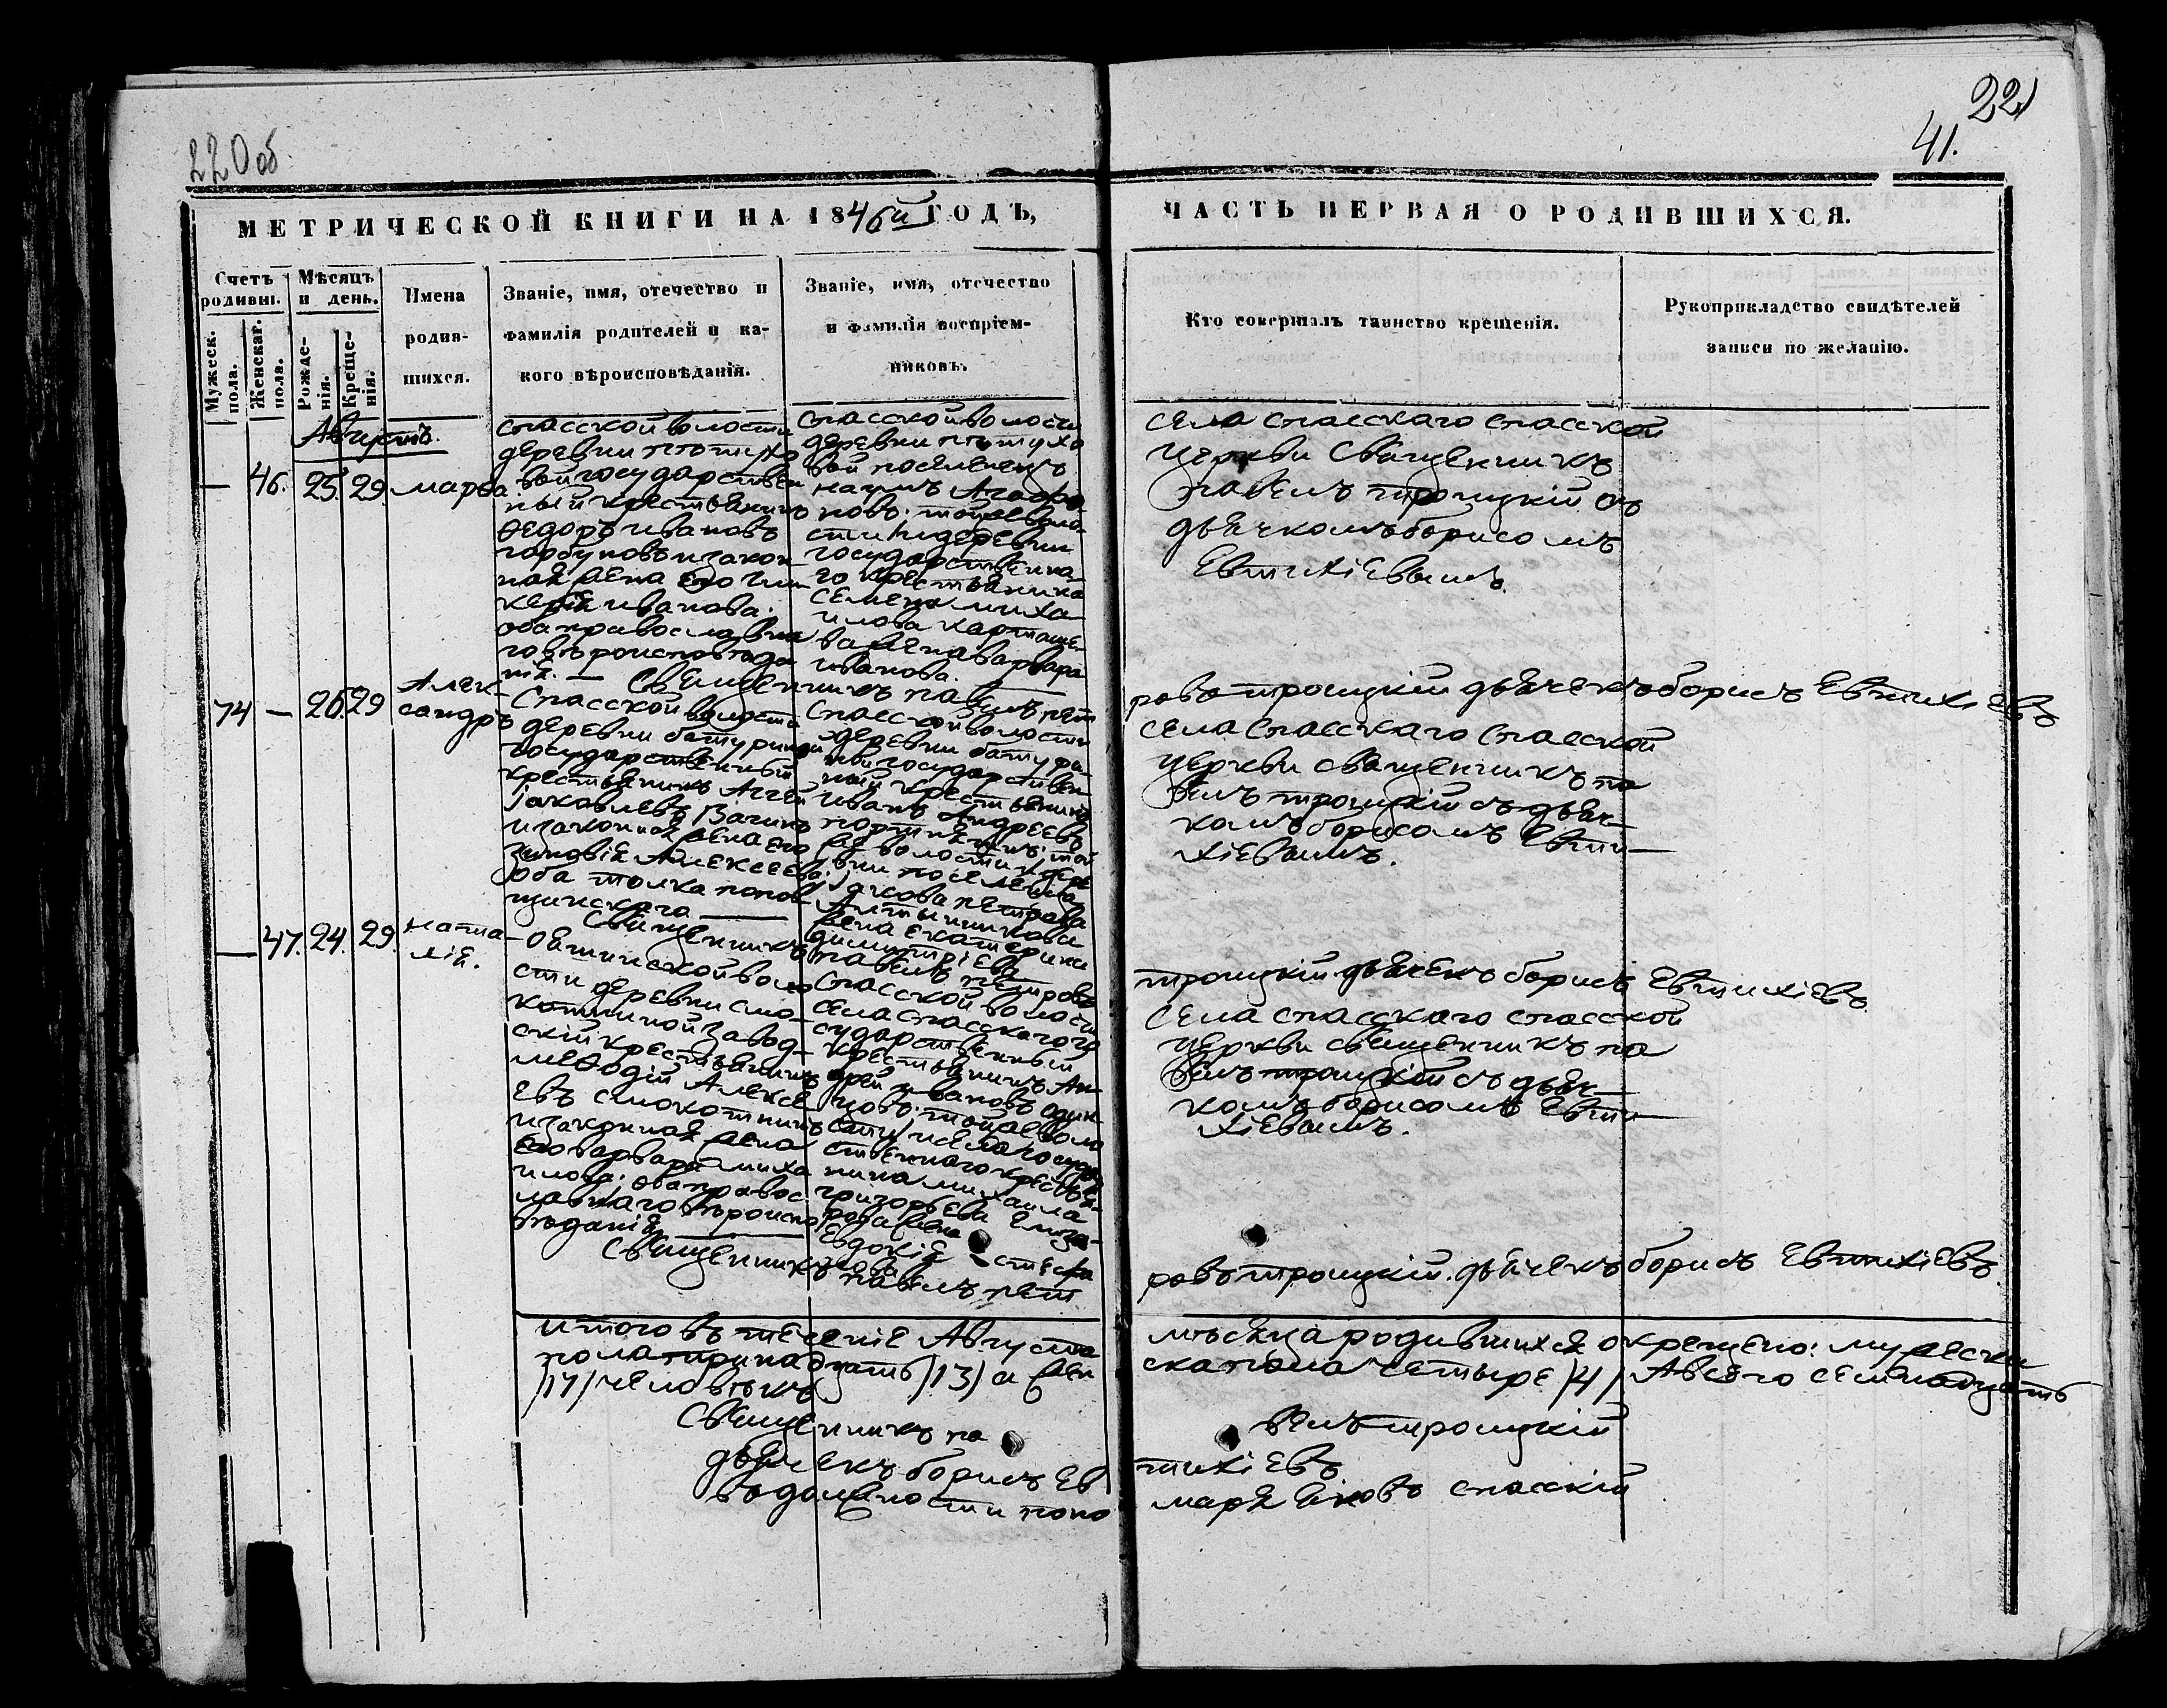 220 об.
221
41.
МЕТРИЧЕСКОЙ КНИГИ НА 1846й ГОДЪ,
ЧАСТЬ ПЕРВАЯ О РОДИВШИХСЯ.
Счетъ родивш.
Мужеск. пола.
Женскаг. пола.
Мѣсяцъ и день.
Рожденія.
Крещенія.
Имена
родив-
шихся.
Званіе, имя, отечество и
фамилія родителей и ка-
кого вѣроисповѣданія.
Званіе, имя, отечество
и фамилія воспріем-
никовъ.
Кто совершалъ таинство крещенія.
Рукоприкладство свидѣтелей
записи по желанію.
Августъ.
— 46. 25. 29. Марѳа.
Спасской волости
деревни Петухо
вой государствен
ный крестьянинъ
Ѳедоръ Ивановъ
Горбуновъ и закон
ная жена его Гли
керія Иванова.
оба православна
го вѣроисповѣда
нія. —
Спасской волости
деревни Петухо
вой поселенецъ
Наумъ Агафо
новъ. той же воло
сти и деревни
государственна
го крестьянина
Семена Миха
илова Карташе
ва жена Варвара
Иванова.
Села Спасскаго Спасской
церкви Священникъ
Павелъ Троицкій съ
дьячкомъ Борисомъ
Евтихіевымъ.
Священникъ Павелъ Пет
ровъ Троицкій дьячекъ Борисъ Евтихіевъ
74 — 26. 29 Алек-
сандръ
Спасской волости
деревни Батуриной
государственный
крестьянинъ Аггей
Іаковлевъ
и законная жена его
Зиновія Алексеева.
оба толка попов
щинскаго —
Спасской волости
деревни Батури-
ной государствен
ной крестьянинъ
Иванъ Андреевъ
той
же волости и дере
вни поселенца
Іакова Петрова
жена Екатерина
Димитріева
Села Спасскаго Спасской
церкви священникъ Па
велъ Троицкій съ дьяч-
комъ Борисомъ Евти-
хіевымъ.
Священникъ Павелъ Петровъ
Троицкій дьячекъ Борисъ Евтихіевъ
— 47. 24. 29. Ната
лія.
сти деревни Смо-
котиной завод-
скій крестьянинъ
Меѳодій Алексе
евъ Смокотнинъ
и законная жена
его Варвара Миха
илова. оба правос
лавнаго вѣроиспо
вѣданія —
Спасской волости
села Спасскаго го
сударственный
крестьянинъ Ан-
дрей Ивановъ Один-
цовъ. той же воло
сти и села государ
ственнаго крестья-
нина Михаила
Григорьева
жена
Евдокія Стефа
нова
Села Спасскаго Спасской
церкви священникъ Па
велъ Троицкій съ дьяч-
комъ Борисомъ Евти-
хіевымъ.
Священникъ Павелъ Пет
ровъ Троицкій. дьячекъ Борисъ Евтихіевъ.
Итого въ теченіе Августа мѣсяца родившихся окрещено: мужеска
пола тринадцать /13/ а жен ска пола четыре /4/ А всего семнадцать
/17/ человѣкъ
Священникъ Па велъ Троицкій
дьячекъ Борисъ Ев тихіевъ
въ должности поно маря Іаковъ Спасскій